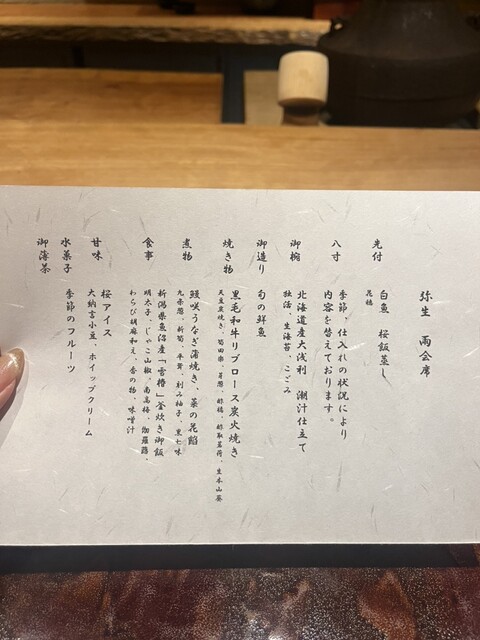 弥生 雨会席
先付
白魚 桜飯蒸し
花穂
八寸
季節、仕入れの状況により
内容を替えております。
御椀
北海道産大浅利 潮汁仕立て
独活、生海苔、こごみ
御造り
旬の鮮魚
焼き物
黒毛和牛リブロース炭火焼き
天豆炭焼き、筍田楽、百合根、酢橘、酢取茗荷、生本山葵
煮物
鰻咲うなぎ蒲焼き、菜の花餡
九条葱、新筍、平茸、刻み柚子、黒七味
食事
新潟県魚沼産「雪椿」釜炊き御飯
明太子、じゃこ山椒、南高梅、伽羅蕗、
わらび胡麻和え、香の物、味噌汁
甘味
桜アイス
大納言小豆、ホイップクリーム
水菓子
季節のフルーツ
御薄茶